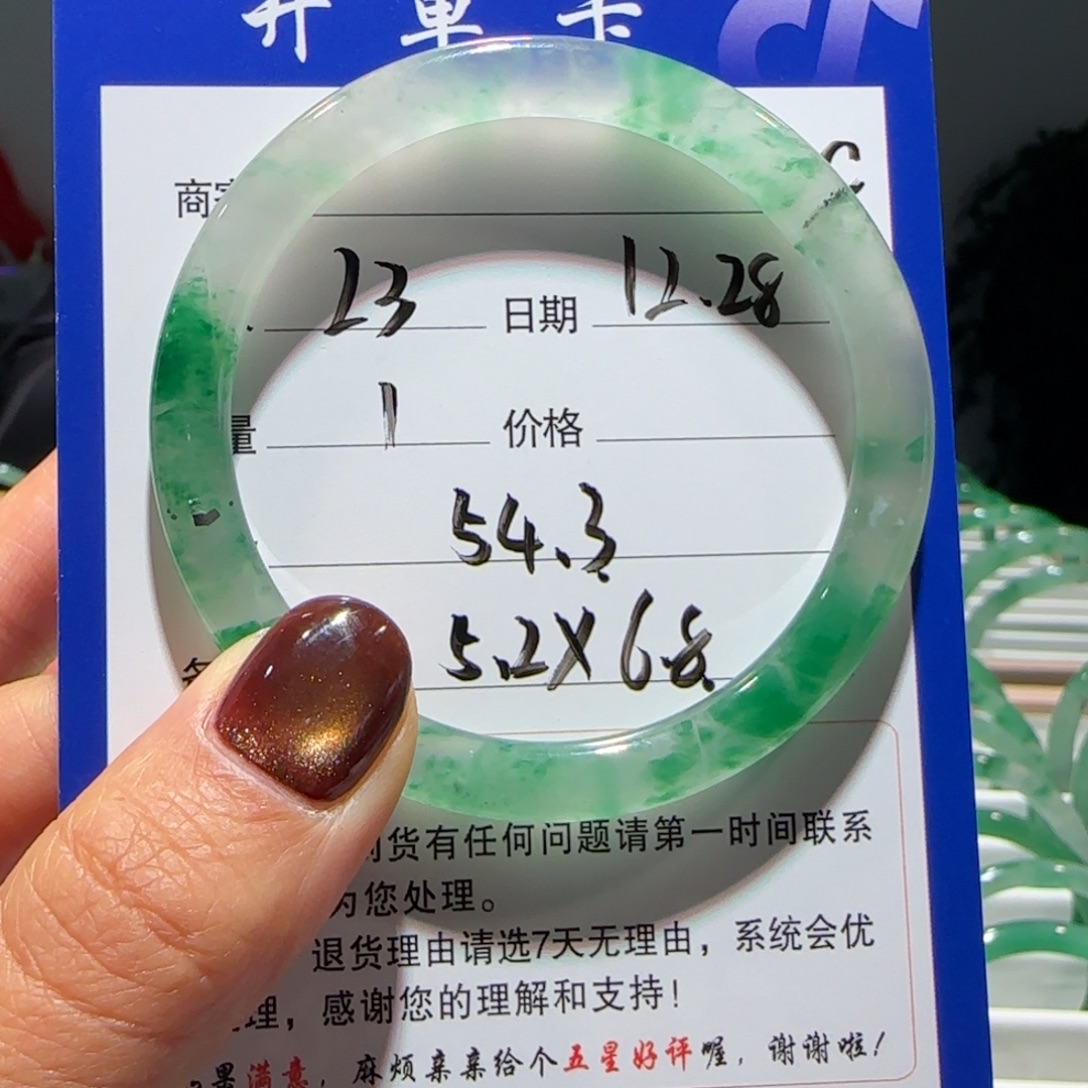 开单卡
商家 C
23 日期 12.28
量 1 价格
54.3
5.2X68
到货有任何问题请第一时间联系
为您处理。
退货理由请选7天无理由，系统会优
处理，感谢您的理解和支持！
如果满意，麻烦亲亲给个五星好评喔，谢谢啦！